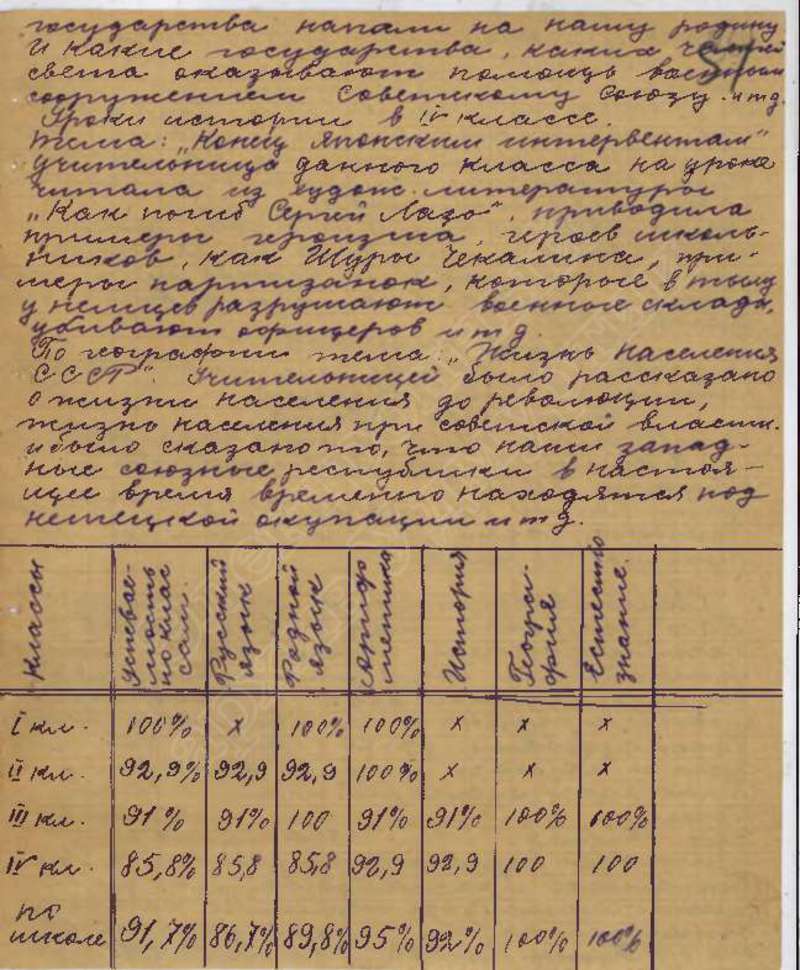 государства напали на нашу родину
и какие государства, каких частей
света оказывают помощь военным
сооружением Советскому Союзу. и т д.
Уроки истории в IV классе.
Тема: „Конец японским интервентам"
учительница данного класса на уроке
читала из худож. литературы
„Как погиб Сергей Лазо", приводила
примеры героизма, героев школь-
ников, как Шуры Чекалина, при-
меры партизанок, которые в тылу
у немцев разрушают военные склады,
убивают офицеров и т д.
По географии тема: „Жизнь населения
СССР". Учительницей было рассказано
о жизни населения до революции,
жизнь населения при советской власти.
и было сказано то, что наши запад-
ные союзные республики в настоя-
щее время временно находятся под
немецкой окупации и т д.
Классы | Успевае-мость по клас сам. | Русский язык | Родной язык | Арифметика | История | Геогра-фия | Естество знание.
I кл. 100% х 100% 100% х х х
II кл. 92,9% 92,9 92,9 100% х х х
III кл. 91% 91% 100 91% 91% 100% 100%
IV кл. 85,8% 85,8 85,8 92,9 92,9 100 100
по
школе 91,7% 86,7% 89,8% 95% 92% 100% 100%